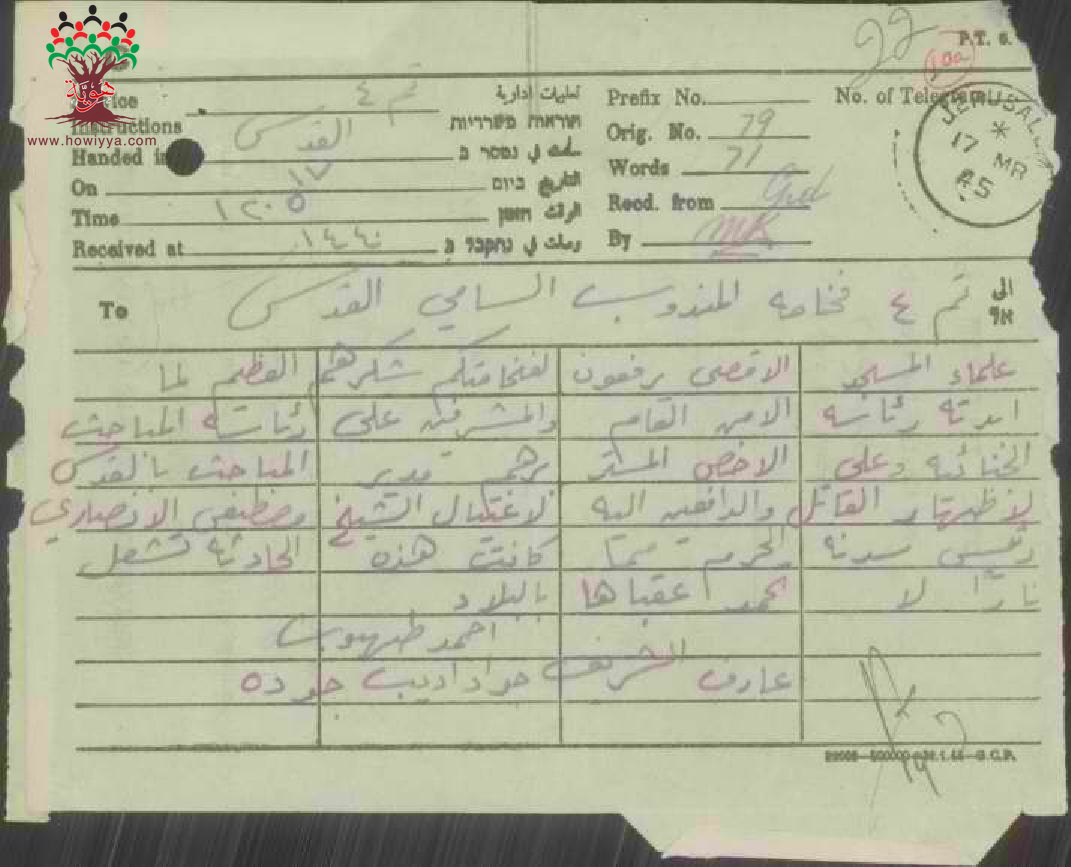 هوية
www.howiyya.com
P.T. 6.
22
100
Service Instructions تعليمات ادارية הוראות משרדיות تم ٤
Prefix No.
No. of Telegram
JERUSALEM
17 MR 45
Handed in القدس سلمت في נמסר ב
Orig. No. 79
Words 71
On ١٧ التاريخ ביום
Time ١٢٠٥ الوقت הזמן
Recd. from
Received at ١٤٤٠ وصلت في נתקבל ב
By MR
To تم ٤ فخامة المندوب السامي القدس الى אל
علماء المسجد الاقصى يرفعون لفخامتكم شكرهم العظيم لما
ابدته رئاسة الامن العام والمشرفين على رئاسة المباحث
الجنائية وعلى الاخص المستر مدير المباحث بالقدس
لاظهار القاتل والدافعين اليه لاغتيال الشيخ مصطفى الانصاري
رئيس سدنة الحرم مما كانت هذه الحادثة تشعل
نارًا لا تحمد عقباها بالبلاد
احمد طهبوب
عارف الشريف جواد اديب جوده
500000 G.C.P.